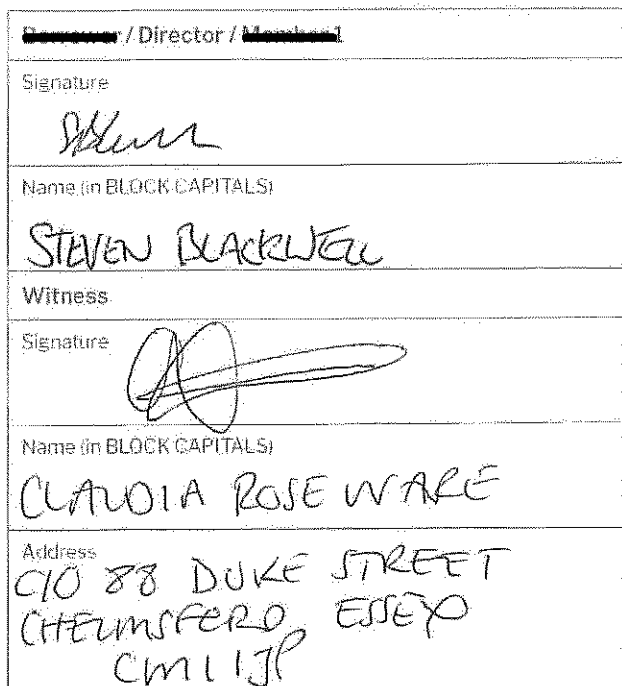 Borrower / Director / Member 1
Signature
Name (in BLOCK CAPITALS)
STEVEN BLACKWELL
Witness
Signature
Name (in BLOCK CAPITALS)
CLAUDIA ROSE WARE
Address
C/O 88 DUKE STREET
CHELMSFORD ESSEX
CM1 1JP